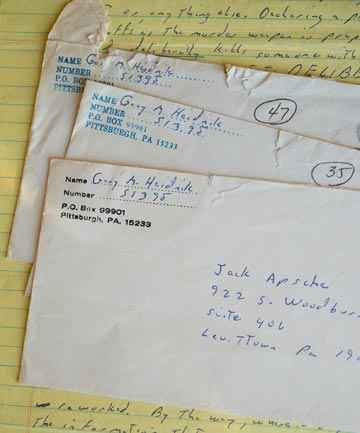 or any thing else. Declaring a p
the murder weapon is prope
deliberately kills someone with
DELIB
NAME Gary M. Heidnik
NUMBER 51398
P.O. BOX
PITTSB
47
NAME Gary M. Heidnik
NUMBER 51398
P.O. BOX 99901
PITTSBURGH, PA 15233
35
Name Gary M. Heidnik
Number 51398
P.O. Box 99901
Pittsburgh, PA. 15233
Jack Apsche
922 S. Woodbur
Suite 406
Lev. TTown Pa 190
reworked. By the way,
The information